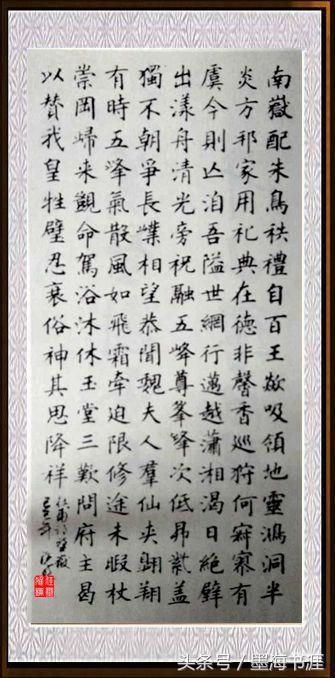 南嶽配朱鳥秩禮自百王欻吸領地靈鴻洞半
炎方邦家用礼典在德非馨香巡狩何寂寥有
虞今則亾洎吾隘世網行邁越瀟湘渴日絕壁
出漾舟清光旁祝融五峰尊峯峰次低昂紫盖
獨不朝爭長嶫相望恭聞魏夫人羣仙夾翱翔
有時五峰氣散風如飛霜牽迫限修途未暇杖
崇岡歸来覬命駕浴沐休玉堂三歎問府主曷
以贊我皇牲璧忍衰俗神其思降祥
杜甫詩望嶽
头条号/墨海书涯